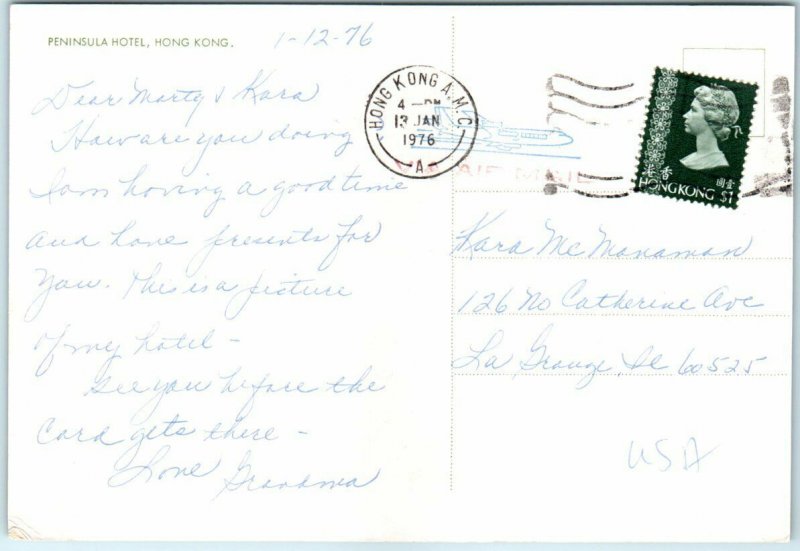 PENINSULA HOTEL, HONG KONG.
1-12-76
Dear Marty & Kara
How are you doing
I am having a good time
and have presents for
you. This is a picture
of my hotel -
see you before the
card gets there -
Love Grandma
HONG KONG A.M.C.
4 - PM
13 JAN
1976
A
AIR MAIL
香港
壹圓
HONG KONG $1
Kara McManaman
126 No Catherine Ave
La Grange, Ill 60525
USA